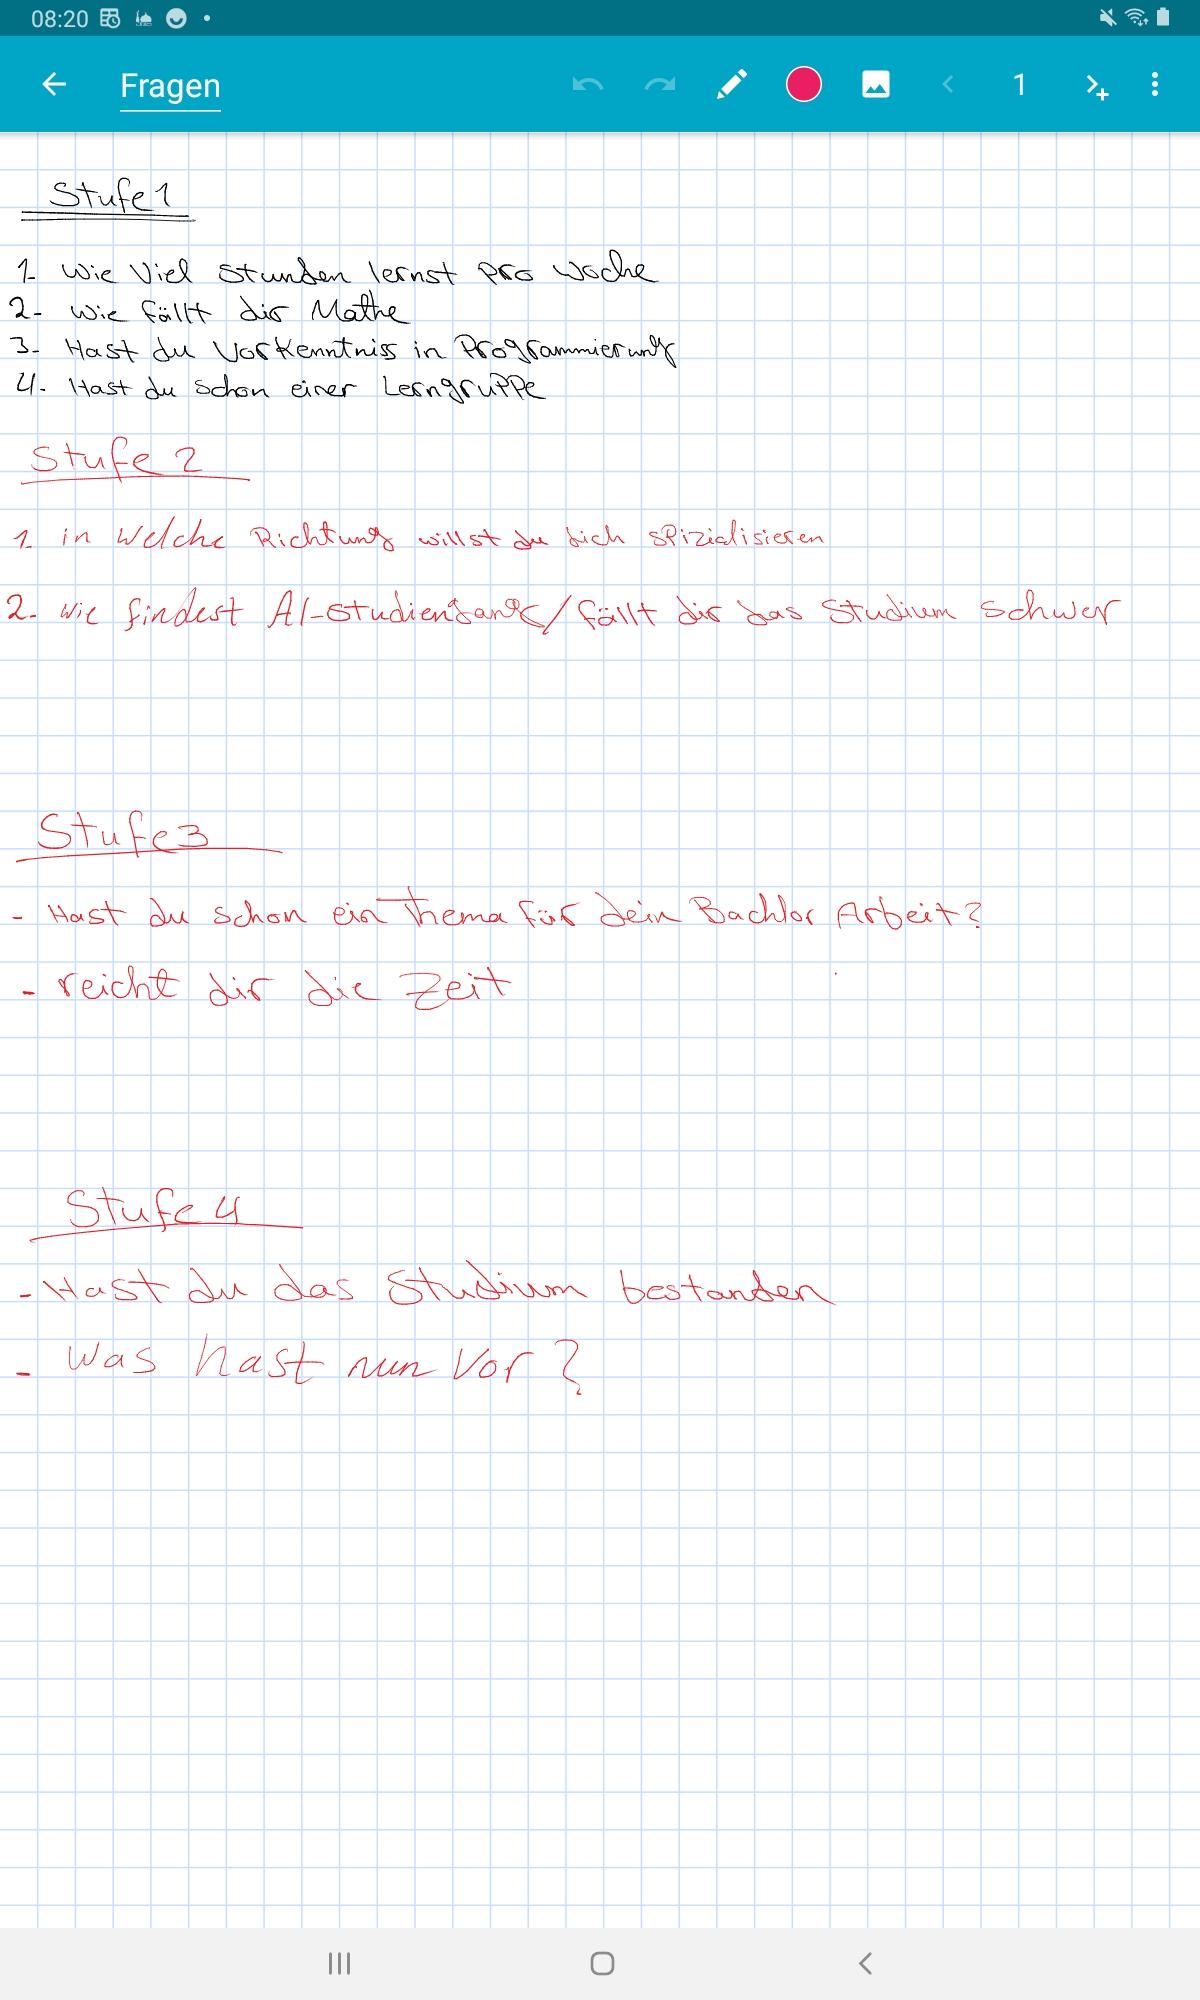 08:20
Fragen
1
Stufe 1
1- Wie Viel Stunden lernst pro Woche
2- Wie fällt dir Mathe
3- Hast du Vorkenntniss in Programmierung
4- Hast du schon einer Lerngruppe
Stufe 2
1. in Welche Richtung willst du dich spizialisieren
2- Wie findest AI-Studiengang/fällt dir das Studium schwer
Stufe 3
- Hast du schon ein Thema für dein Bachlor Arbeit?
- reicht dir die Zeit
Stufe 4
- Hast du das Studium bestanden
- Was hast nun Vor?